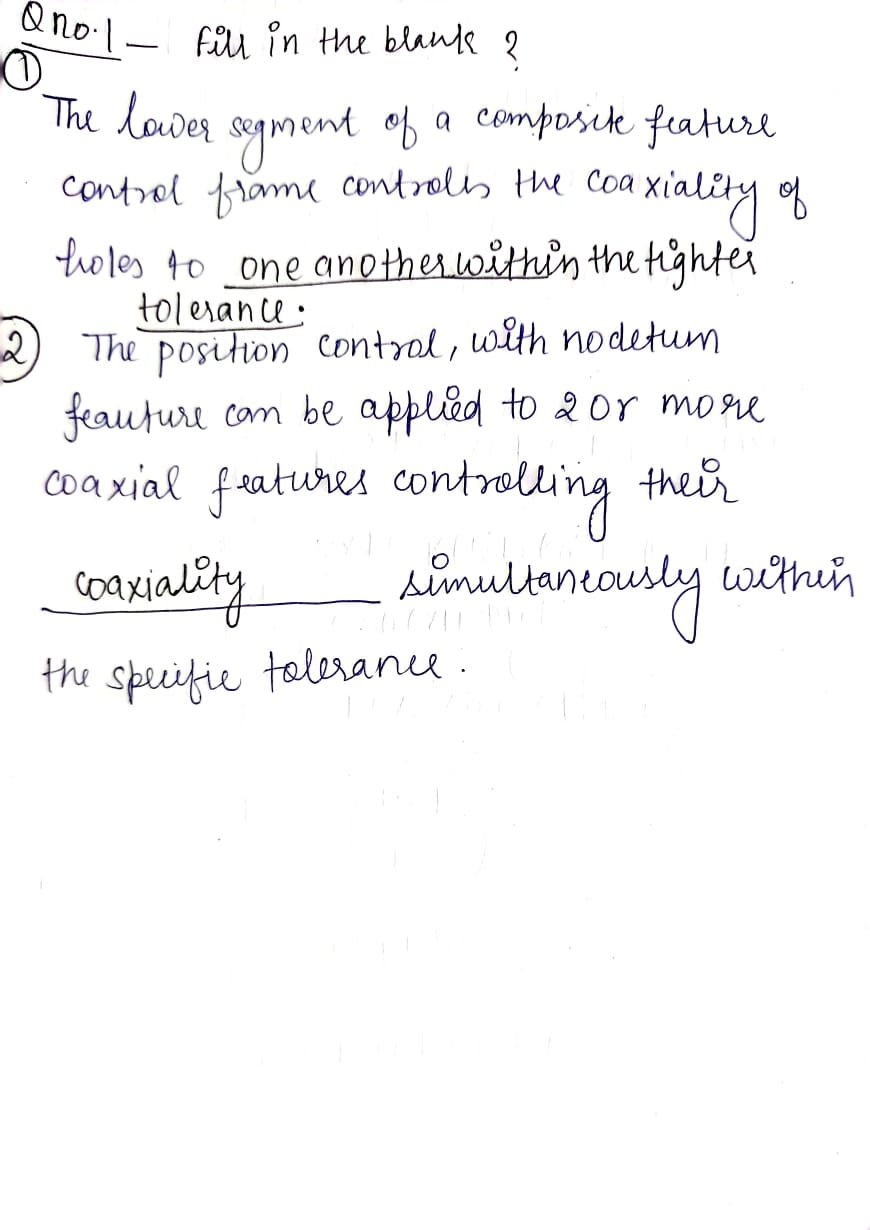 Q no.1 — Fill in the blank ?
① The lower segment of a composite feature
control frame controlls the coaxiality of
holes to one another within the tighter
tolerance.
② The position control, with no detum
feauture can be applied to 2 or more
coaxial features controlling their
coaxiality simultaneously within
the specific tolerance.